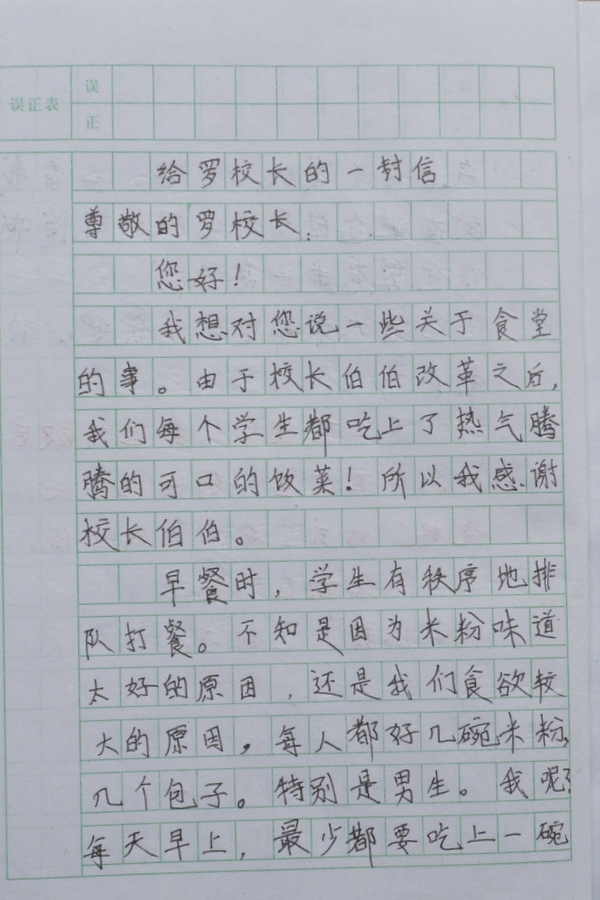 误正表
误
正
给罗校长的一封信
尊敬的罗校长:
您好!
我想对您说一些关于食堂
的事。由于校长伯伯改革之后,
我们每个学生都吃上了热气腾
腾的可口的饭菜!所以我感谢
校长伯伯。
早餐时,学生有秩序地排
队打餐。不知是因为米粉味道
太好的原因,还是我们食欲较
大的原因,每人都好几碗米粉,
几个包子。特别是男生。我呢?
每天早上,最少都要吃上一碗